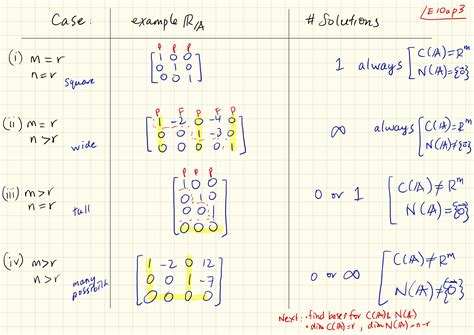 Case: example R/A # Solutions E10 p3
P P P
(i) m = r
n = r square
[1 0 0
0 1 0
0 0 1]
1 always [C(A) = R^m
N(A) = {0}
P F P F P
(ii) m = r
n > r wide
[1 -2 0 -4 0
0 0 1 -3 0
0 0 0 0 1]
∞ always [C(A) = R^m
N(A) ≠ {0}
P P P
(iii) m > r
n = r tall
[1 0 0
0 1 0
0 0 1
0 0 0]
0 or 1 [C(A) ≠ R^m
N(A) = {0}
(iv) m > r
n > r many
[1 -2 0 12
0 0 1 -7
0 0 0 0]
0 or ∞ [C(A) ≠ R^m
N(A) ≠ {0}
Next: • find bases for C(A) & N(A)
• dim C(A) = r, dim N(A) = n-r